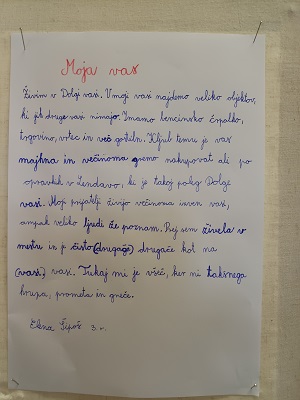 Moja vas
Živim v Dolgi vasi. V moji vasi najdemo veliko objektov,
ki jih druge vasi nimajo. Imamo bencinsko črpalko,
trgovino, vrtec in več gostiln. Kljub temu je vas
majhna in večinoma gremo nakupovat ali po
opravkih v Lendavo, ki je takoj poleg Dolge
vasi. Moji prijatelji živijo večinoma izven vasi,
ampak veliko ljudi že poznam. Prej sem živela v
mestu in je čisto (drugače) drugače kot na
(vasi) vasi. Tukaj mi je všeč, ker ni takšnega
hrupa, prometa in gneče.
Elena Šipoš 3. r.